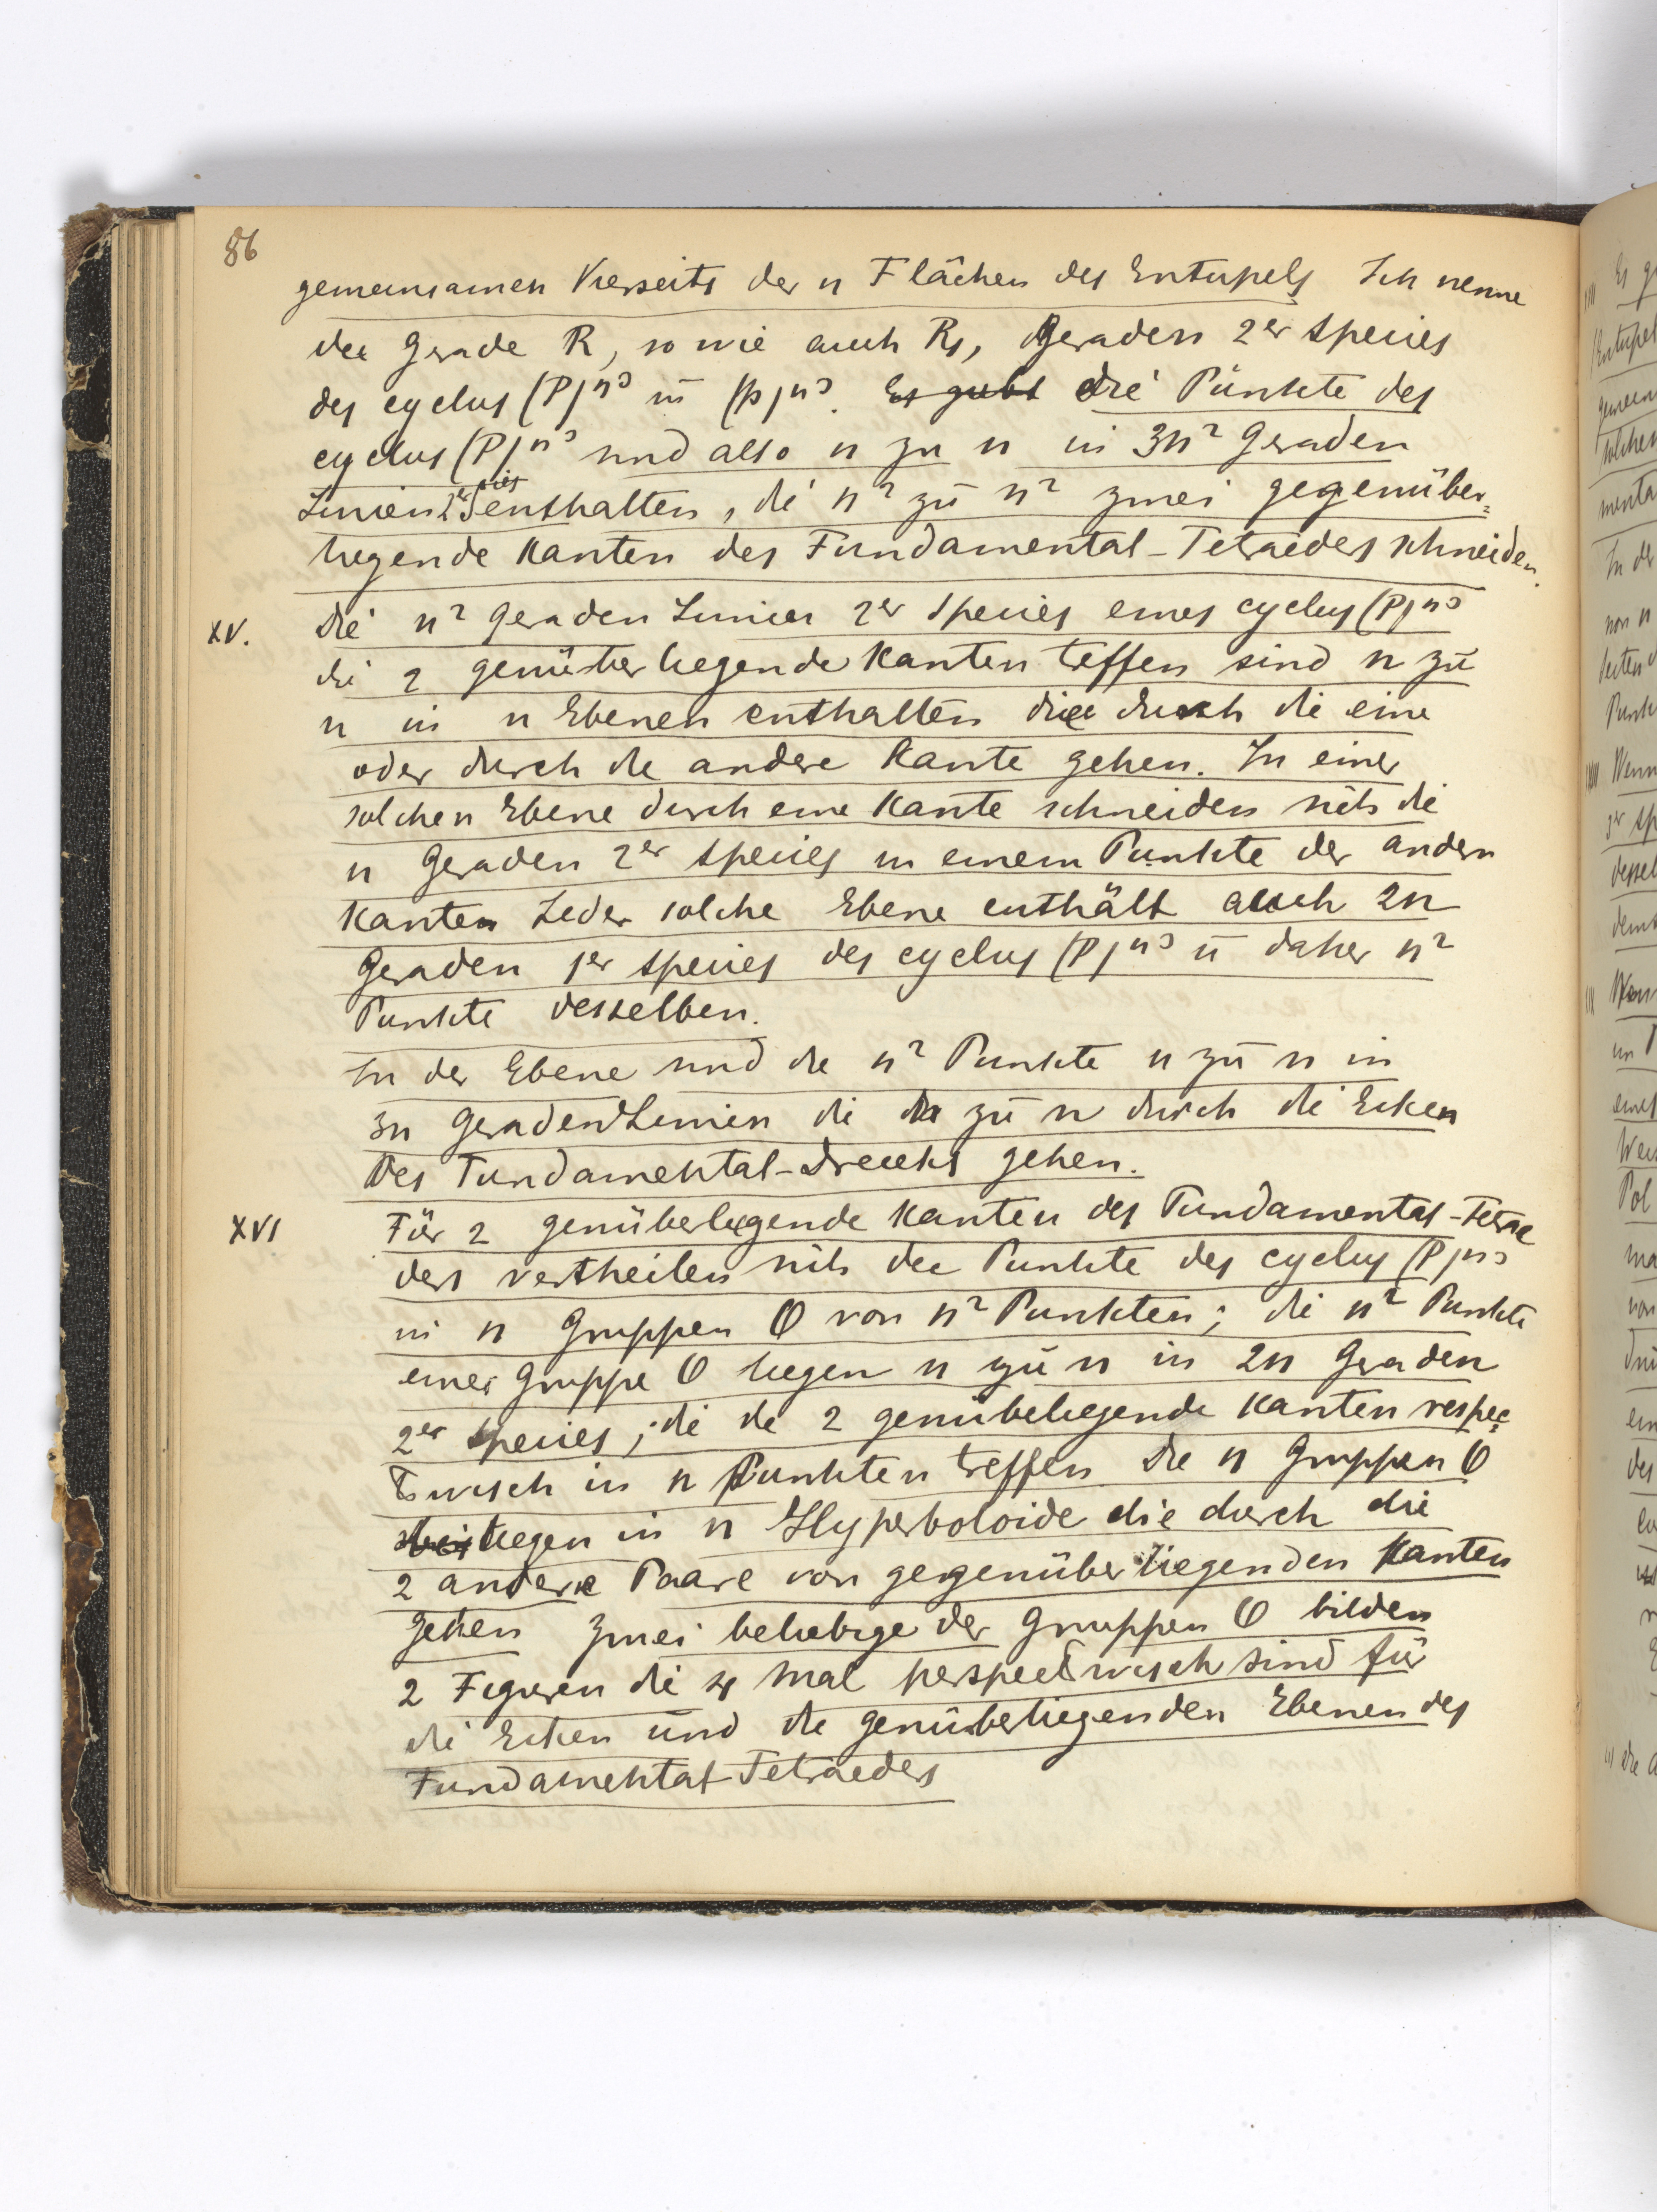 86
gemeinsamen Vierseits der n Flächen des Entupels Ich nenne
die Gerade R, so wie auch R₁, Geraden 2er Species
des cyclus (P)n³ ū (p)n³. Es giebt die Punkte des
cyclus (P)n³ sind also n zu n in 3n² Geraden
Linien 2er Sies enthalten, die n² zu n² zwei gegenüber=
liegende Kanten des Fundamental-Tetraeders schneiden.
XV. Die n² Geraden Linien 2er Species eines cyclus (P)n³
die 2 genüberliegende Kanten teffen sind n zu
n in n Ebenen enthalten die durch die eine
oder durch die andere Kante gehen. In einer
solchen Ebene durch eine Kante schneiden sich die
n Geraden 2er Species in einem Punkte der andern
Kanten Jeder solche Ebene enthält auch 2n
Geraden 1er Species des cyclus (P)n³ ū daher n²
Punkte desselben.
In der Ebene sind die n² Punkte n zu n in
3n Geraden Linien die zu n durch die Ecken
des Fundamental-Dreiecks gehen.
XVI Für 2 genüberliegende Kanten des Fundamental-Tetrae
ders vertheilen sich die Punkte des cyclus (P)n³
in n Gruppen O von n² Punkten; die n² Punkte
einer Gruppe O liegen n zu n in 2n Geraden
2er Species; die die 2 genüberliegende Kanten respec=
tivisch in n Punkten treffen Die n Gruppen O
liegen in n Hyperboloide die durch die
2 andere Paare von gegenüberliegenden Kanten
gehen Zwei beliebige der Gruppen O bilden
2 Figuren die 4 Mal perspectivisch sind für
die Ecken und die genüberliegenden Ebenen des
Fundamental-Tetraeders